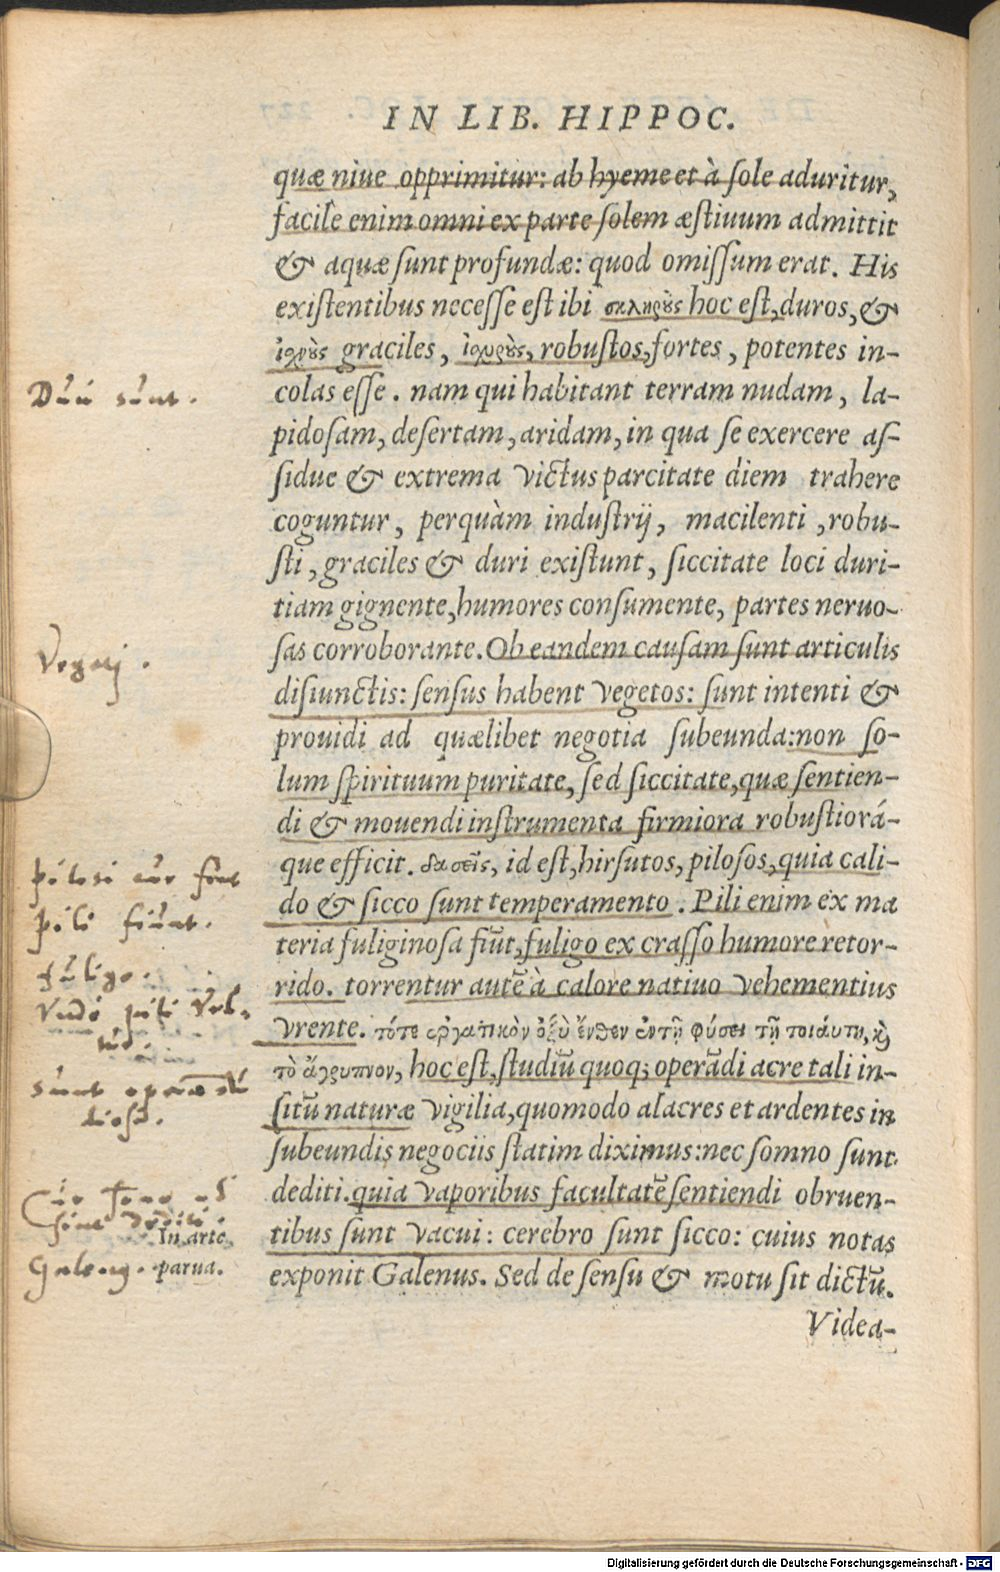 IN LIB. HIPPOC.
quæ niue opprimitur: ab hyeme et à ſole aduritur,
facile enim omni ex parte ſolem æſtiuum admittit
& aquæ ſunt profundæ: quod omiſſum erat. His
exiſtentibus neceſſe eſt ibi σκληροὺς hoc eſt, duros, &
ἰχνοὺς graciles, ἰχυροὺς, robuſtos, fortes, potentes in-
colas eſſe. nam qui habitant terram nudam, la-
Duri sunt.
pidoſam, deſertam, aridam, in qua ſe exercere aſ-
ſidue & extrema victus parcitate diem trahere
coguntur, perquàm induſtrij, macilenti, robu-
ſti, graciles & duri exiſtunt, ſiccitate loci duri-
tiam gignente, humores conſumente, partes neruo-
ſas corroborante. Ob eandem cauſam ſunt articulis
Vegeti.
diſiunctis: ſenſus habent vegetos: ſunt intenti &
prouidi ad quælibet negotia ſubeunda: non ſo-
lum ſpirituum puritate, ſed ſiccitate, quæ ſentien-
di & mouendi inſtrumenta firmiora robuſtiorá-
que efficit. δασεῖς, id eſt, hirſutos, piloſos, quia cali-
pilosi cur sint
do & ſicco ſunt temperamento. Pili enim ex ma
pili fiunt.
teria fuliginoſa fiũt, fuligo ex craſſo humore retor-
fuligo.
rido. torrentur autẽ à calore natiuo vehementius
vnde pili
vrente. τότε ἐργατικὸν ὀξὺ ἔνθεν ἐντῇ φύσει τῇ τοιάυτῃ, κỳ
τὸ ἄγρυπνον, hoc eſt, ſtudiũ quoq; operãdi acre tali in-
sunt
ſitũ naturæ vigilia, quomodo alacres et ardentes in
ſubeundis negociis ſtatim diximus: nec ſomno ſunt
dediti. quia vaporibus facultatẽ ſentiendi obruen-
Cur somno non
sint dediti.
tibus ſunt vacui: cerebro ſunt ſicco: cuius notas
In arte
exponit Galenus. Sed de ſenſu & motu ſit dictũ.
Galenus. parua.
Videa-
Digitalisierung gefördert durch die Deutsche Forschungsgemeinschaft - DFG